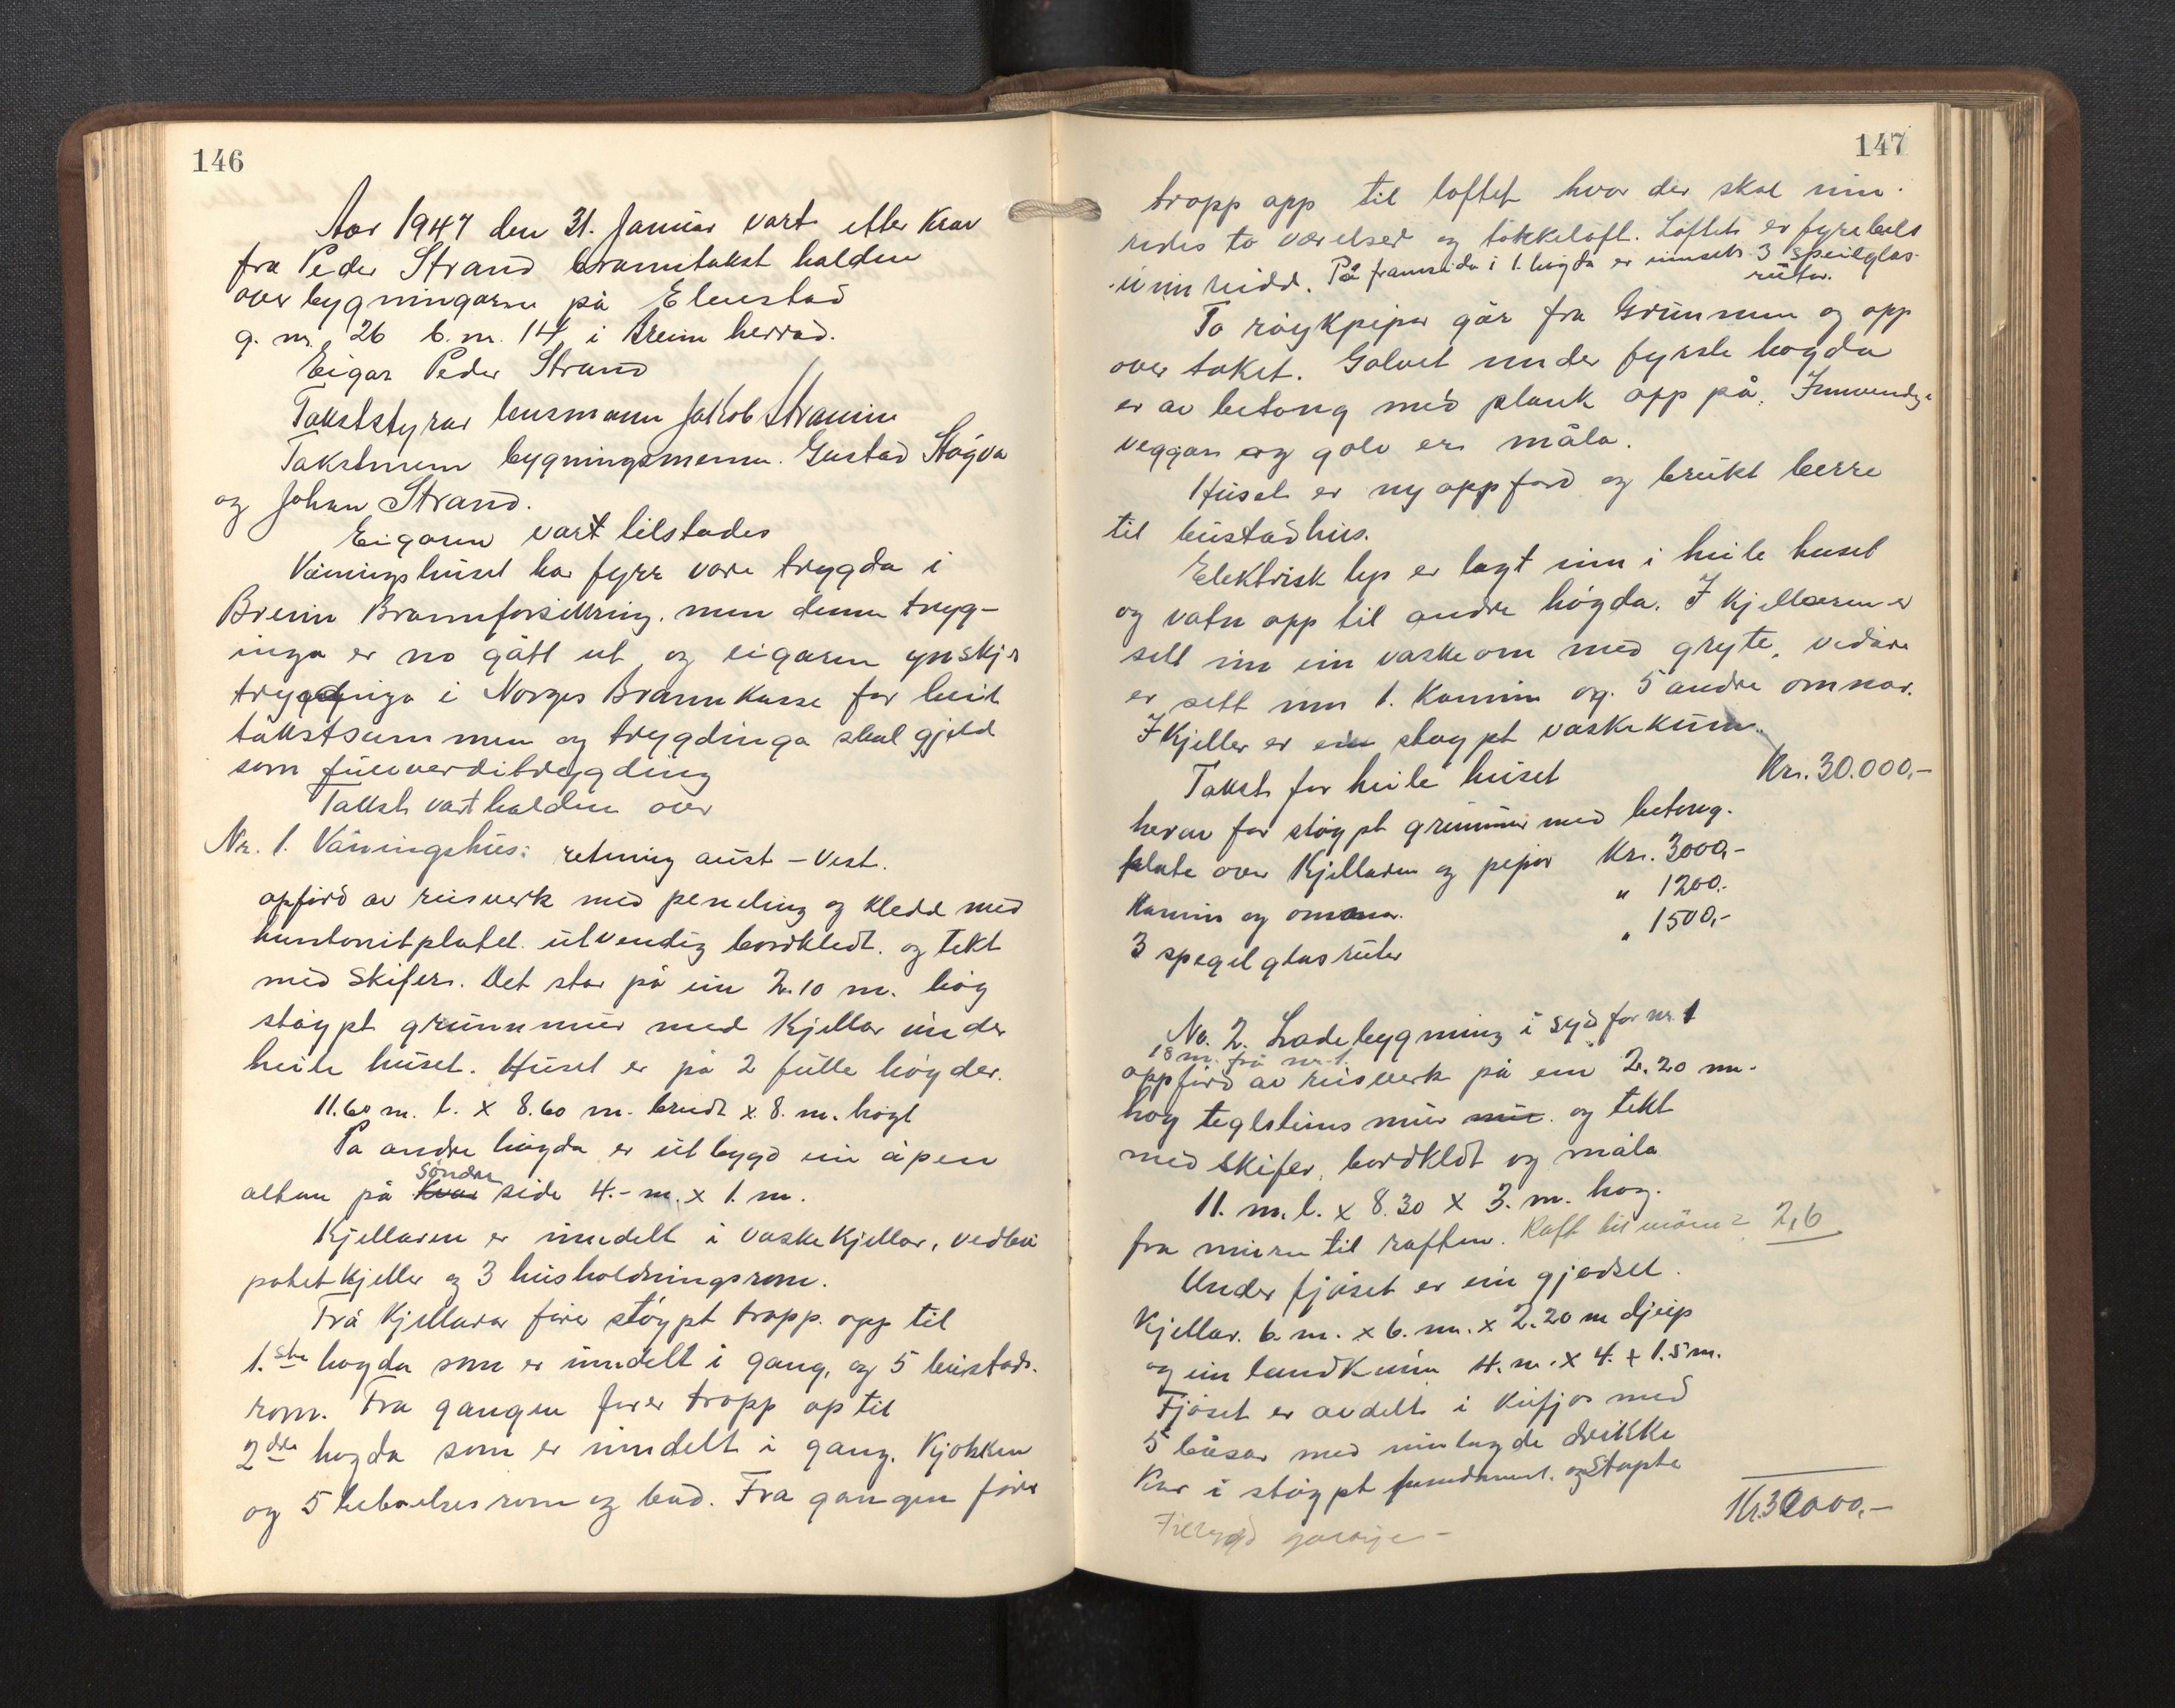 146
Aar 1947 den 31. Januar vart etter Krav
fra Peder Strand branntakst halden
over bygningarne på Elvestad
g. nr. 26 b. nr. 14 i Breim herrad.
Eigar Peder Strand
Takststyrar lensmann Jakob Strømme
Takstmenn bygningsmenn. Gustav Støyva
og Johan Strand.
Eigaren vart tilstades
Våningshuset har fyrr vore trygda i
Breim Brannforsikring. men denne tryg-
inga er no gått ut og eigaren ynskjer
trygdinga i Norges Brannkasse for heile
takstsummen og trygdinga skal gjelde
som fullverditrygding
Takst vart halden over
Nr. 1. Våningshus: retning aust - Vest.
opførd av reisverk med peneling og kledd med
huntonitplater. utvendig bordkledt. og tekt
med Skifer. Det star på ein 2.10 m. høg
støypt grunnmur med Kjellar under
heile huset. Huset er på 2 fulle høgder.
11.60 m. l. x 8.60 m. breidt x 8. m. høgt
Pa andre høgda er utbygd ein åpen
Søndre
altan på Kvar side 4.- m. x 1. m.
Kjellaren er inndelt i vaskekjellar, vedbu
potetkjeller og 3 husholdningsrom.
Frå Kjellaren fører støypt trapp. opp til
1.ste høgda som er inndelt i gang, og 5 bustads-
rom. Fra gangen fører trapp op til
2dre høgda som er inndelt i gang. Kjøkken
og 5 beboelsesrom og bad. Fra gangen fører
147
trapp opp til loftet hvor der skal inn-
redes to værelser og tørkeloft. Loftet er fyrebels
uinnreidd. På framsida i 1. høgda er innsett 3 speilglas-
rutar.
To røykpiper går fra Grunnen og opp
over taket. Golvet under fyrste høgda
er av betong med plank opp på. Innvendige
veggar og golv er måla.
Huset er ny oppførd og brukt berre
til bustadhus.
Elektrisk lys er lagt inn i heile huset
og vatn opp til andre høgda. I Kjellaren er
sett inn ein vaskeomn med gryte, vidare
er sett inn 1. Kamin og 5 andre omnar.
I Kjeller er ein støypt vaskekum.
Takst for heile huset Kr. 30.000,-
herav for støypt grunnmur med betong-
plate over Kjellaren og pipor Kr. 3000,-
Kamin og omnar. " 1200.-
3 spegelglasruter " 1500,-
No. 2. Ladebygning i syd for nr. 1
18 m. frå nr. 1.
oppførd av reisverk på ein 2.20 m.
høg teglsteins mur mur. og tekt
med Skifer, bordkledt og måla
11. m. l. x 8.30 x 3. m. høg.
fra muren til raften. Raft til møne 2,6
Under fjøset er ein gjødsel
Kjellar. 6. m. x 6. m. x 2.20 m djup
og ein landkum 4. m. x 4. x 1.5 m.
Fjøset er avdelt i Kufjøs med
5 båsar med innlagde drikke
Kar i støypt fundament. og Støpte
Kr. 30000,-
Tilbygd garasje -